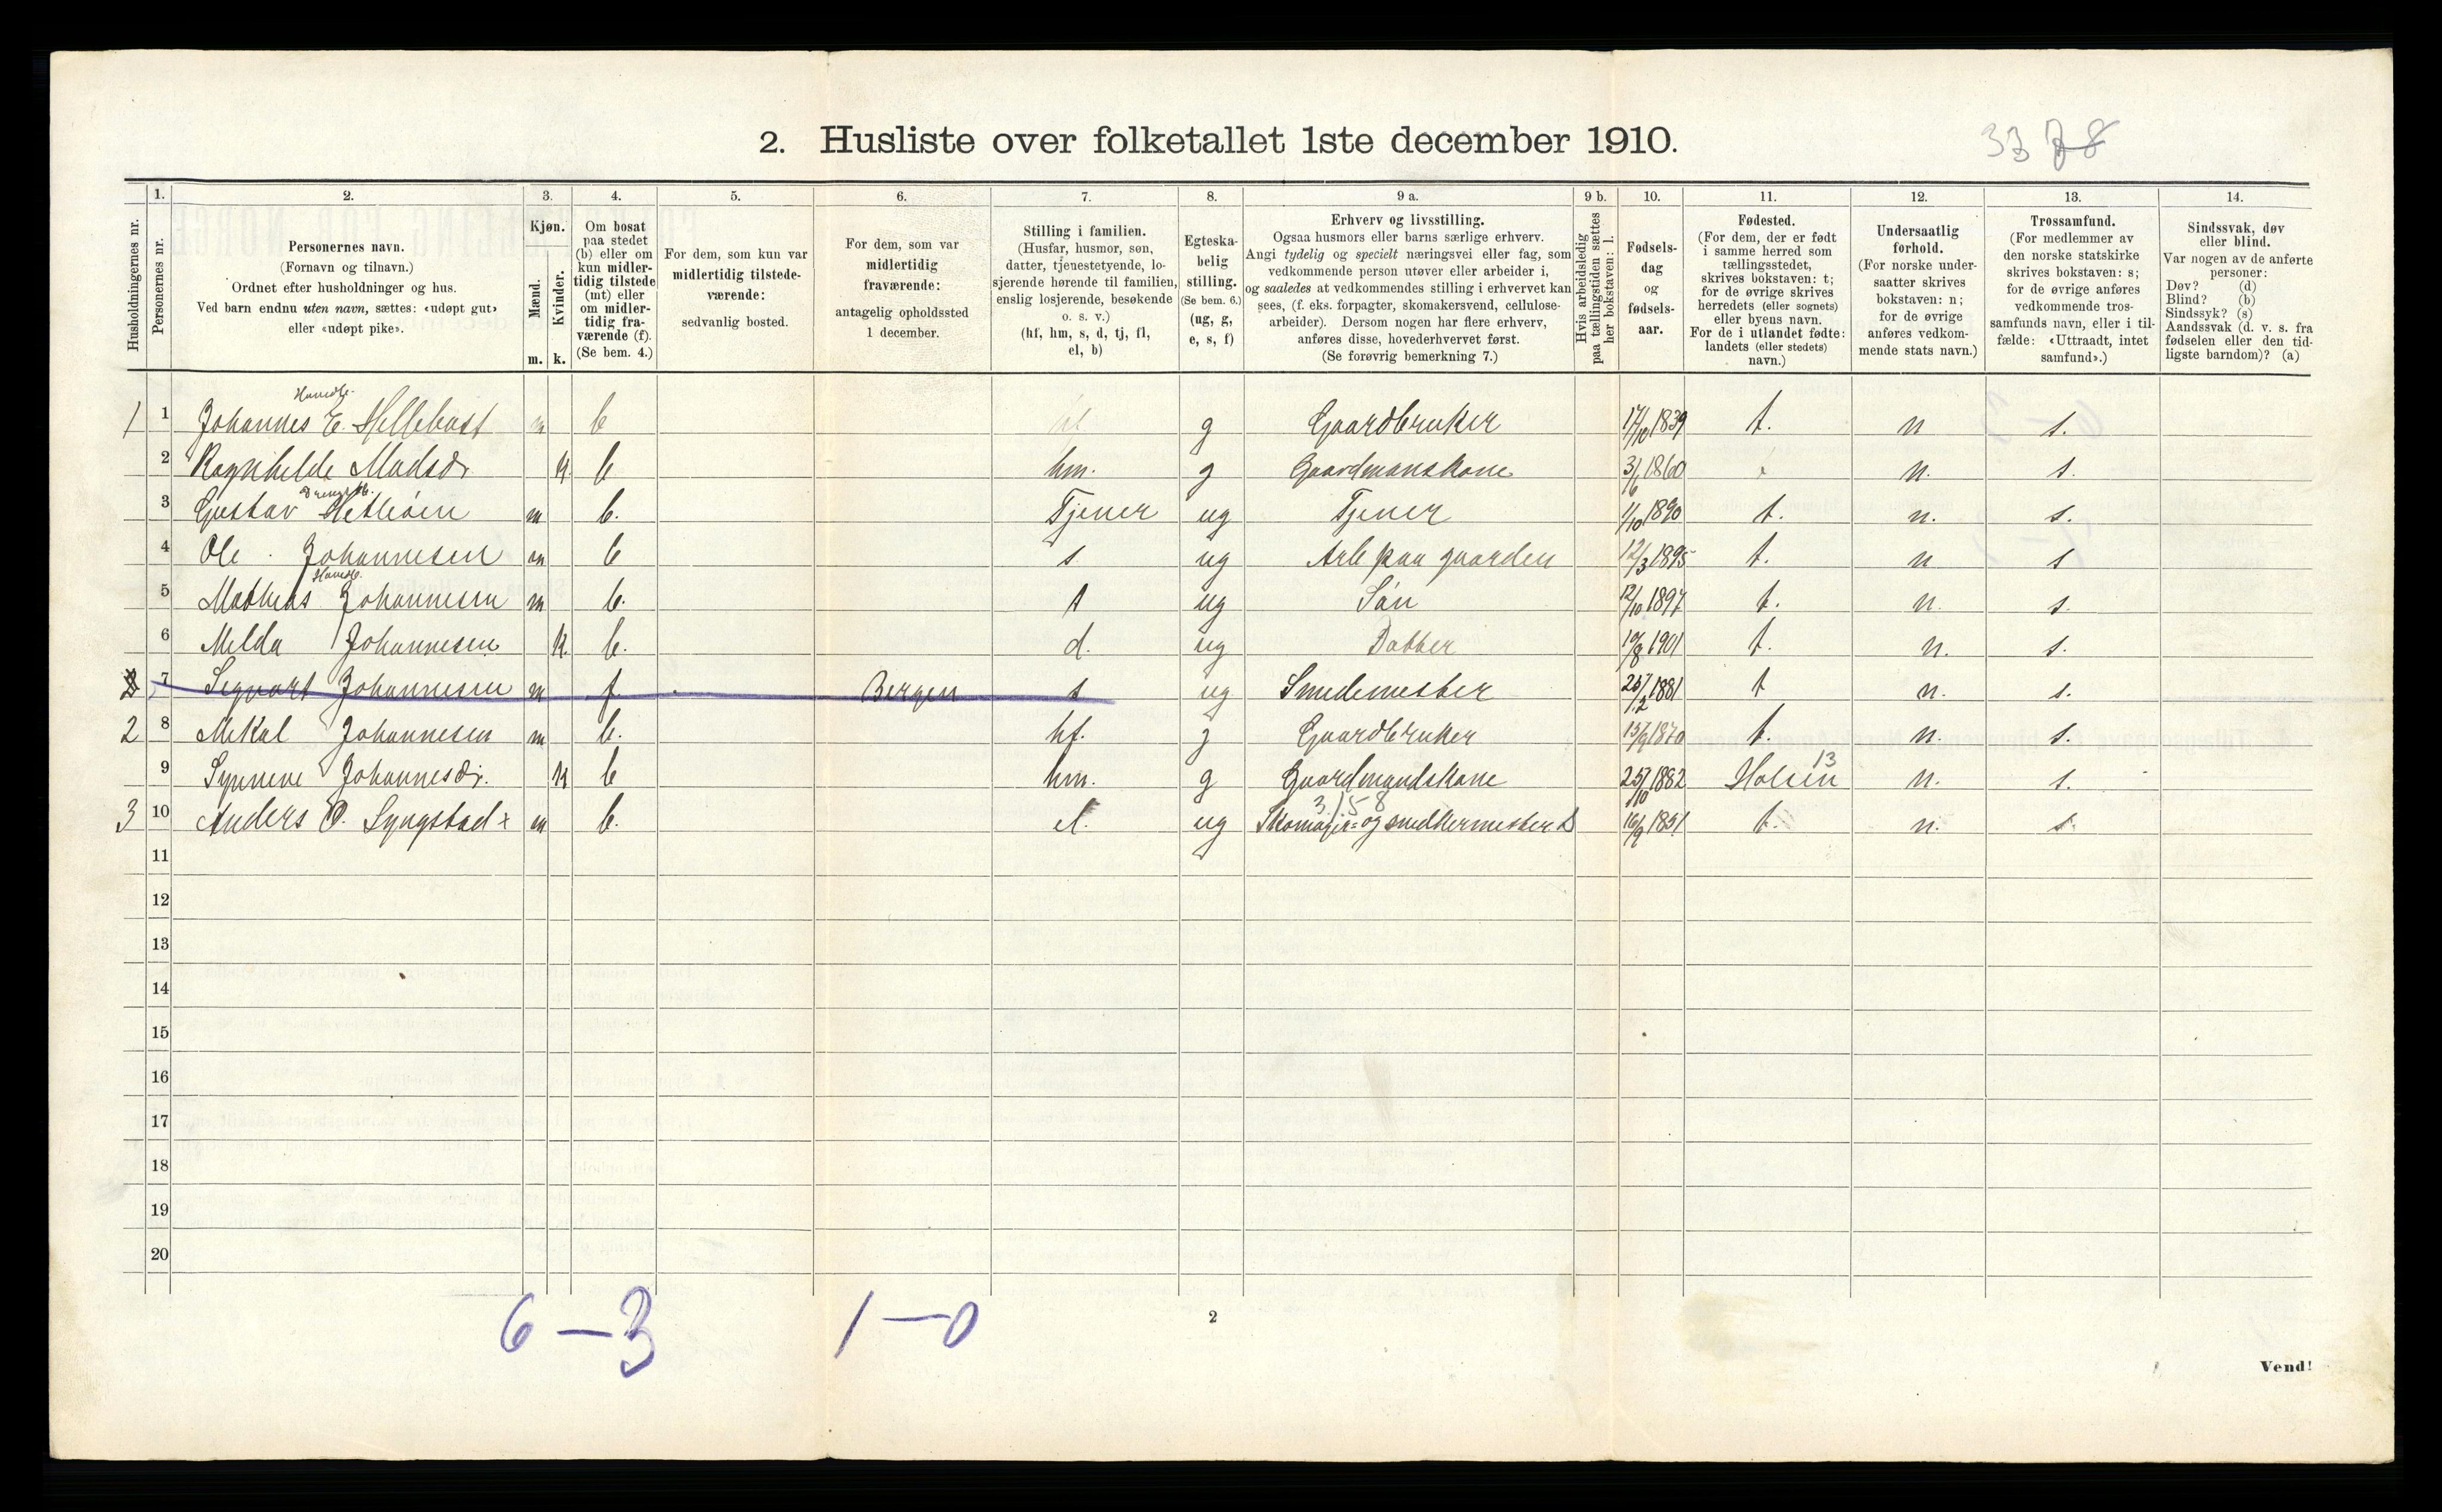 2. Husliste over folketallet 1ste december 1910.
33
Husholdningernes nr.
1. Personernes nr.
2. Personernes navn.
(Fornavn og tilnavn.)
Ordnet efter husholdninger og hus.
Ved barn endnu uten navn, sættes: «udøpt gut»
eller «udøpt pike».
3. Kjøn.
Mænd. m.
Kvinder. k.
4. Om bosat
paa stedet
(b) eller om
kun midler-
tidig tilstede
(mt) eller
om midler-
tidig fra-
værende (f).
(Se bem. 4.)
5. For dem, som kun var
midlertidig tilstede-
værende:
sedvanlig bosted.
6. For dem, som var
midlertidig
fraværende:
antagelig opholdssted
1 december.
7. Stilling i familien.
(Husfar, husmor, søn,
datter, tjenestetyende, lo-
sjerende hørende til familien,
enslig losjerende, besøkende
o. s. v.)
(hf, hm, s, d, tj, fl,
el, b)
8. Egteska-
belig
stilling.
(Se bem. 6.)
(ug, g,
e, s, f)
9 a. Erhverv og livsstilling.
Ogsaa husmors eller barns særlige erhverv.
Angi tydelig og specielt næringsvei eller fag, som
vedkommende person utøver eller arbeider i,
og saaledes at vedkommendes stilling i erhvervet kan
sees, (f. eks. forpagter, skomakersvend, cellulose-
arbeider). Dersom nogen har flere erhverv,
anføres disse, hovederhvervet først.
(Se forøvrig bemerkning 7.)
9 b. Hvis arbeidsledig
paa tællingstiden sættes
her bokstaven: l.
10. Fødsels-
dag
og
fødsels-
aar.
11. Fødested.
(For dem, der er født
i samme herred som
tællingsstedet,
skrives bokstaven: t;
for de øvrige skrives
herredets (eller sognets)
eller byens navn.
For de i utlandet fødte:
landets (eller stedets)
navn.)
12. Undersaatlig
forhold.
(For norske under-
saatter skrives
bokstaven: n;
for de øvrige
anføres vedkom-
mende stats navn.)
13. Trossamfund.
(For medlemmer av
den norske statskirke
skrives bokstaven: s;
for de øvrige anføres
vedkommende tros-
samfunds navn, eller i til-
fælde: «Uttraadt, intet
samfund».)
14. Sindssvak, døv
eller blind.
Var nogen av de anførte
personer:
Døv? (d)
Blind? (b)
Sindssyk? (s)
Aandssvak (d. v. s. fra
fødselen eller den tid-
ligste barndom)? (a)
1 1 Johannes E. Hellebust m b g Gaardbruker 17/10 1839 t. n s.
2 Ragnhilde Madsdr. k b hm. g Gaardmanskone 3/6 1860 n. s.
3 Gustav m b. Tjener ug Tjener 1/10 1890 t. n. s.
4 Ole Johannesen m b s ug Arb paa gaarden 12/3 1895 t. n s
5 Mathias Johannesen m b. s ug Søn 12/10 1897 t. n. s.
6 Melda Johannesen k. b. d. ug Datter 1901 t. n. s.
7 Sigvart Johannesen m f. Bergen s ug Smedemester 25/12 1881 t n. s.
2 8 Mikal Johannesen m b. hf. g Gaardbruker 1870 t. n. s.
13
9 Synneve Johannesdr. k b hm. g Gaardmandskone 25/10 1882 Holsen n. s.
3158
3 10 Anders O. Syngstad x m b. el. ug Skomager= og snedkermester 16/9 1851 t. n. s.
11
12
13
14
15
16
17
18
19
20
6—3 1—0
2
Vend!